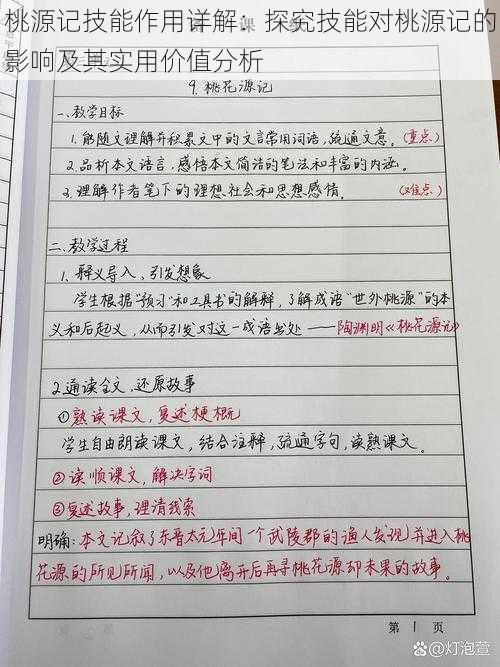 桃源记技能作用详解：探究技能对桃源记的
影响及其实用价值分析
9. 桃花源记
一、教学目标
1. 能随文理解并积累文中的文言常用词语，疏通文意。（重点）
2. 品析本文语言，感悟本文简洁的笔法和丰富的内涵。
3. 理解作者笔下的理想社会和思想感情。（难点）
二、教学过程
1. 释义导入、引发想象
学生根据"预习"和工具书的解释，了解成语"世外桃源"的本
义和后起义，从而引发对这一成语出处——陶渊明《桃花源记》
2. 通读全文，还原故事
①熟读课文，复述梗概
学生自由朗读课文，结合注释，疏通字句，读熟课文。
②读顺课文，解决字词
③复述故事，理清线索
明确：本文记叙了东晋太元年间一个武陵郡的渔人发现并进入桃
花源的所见所闻，以及他离开后再寻桃花源却未果的故事。
第 1 页
@灯泡萱